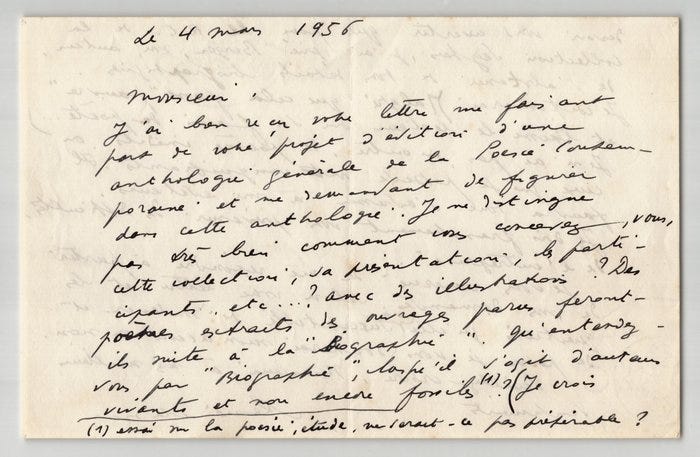 Le 4 mars 1956
Monsieur,
J'ai bien reçu votre lettre me faisant
part de votre projet d'édition d'une
anthologie générale de la Poésie Contem-
poraine et me demandant de figurer
dans cette anthologie. Je ne distingue
pas très bien comment vous concevez, vous,
cette collection, sa présentation, les parti-
cipants.. etc...? avec des illustrations? Des
poèmes extraits des ouvrages parus feront-
ils suite à la "Biographie". Qu'entendez-
vous par "Biographie", lorsqu'il s'agit d'auteurs
vivants et non encore fossiles (1)? (Je crois
(1) essai sur la poésie, étude, ne serait-ce pas préférable?